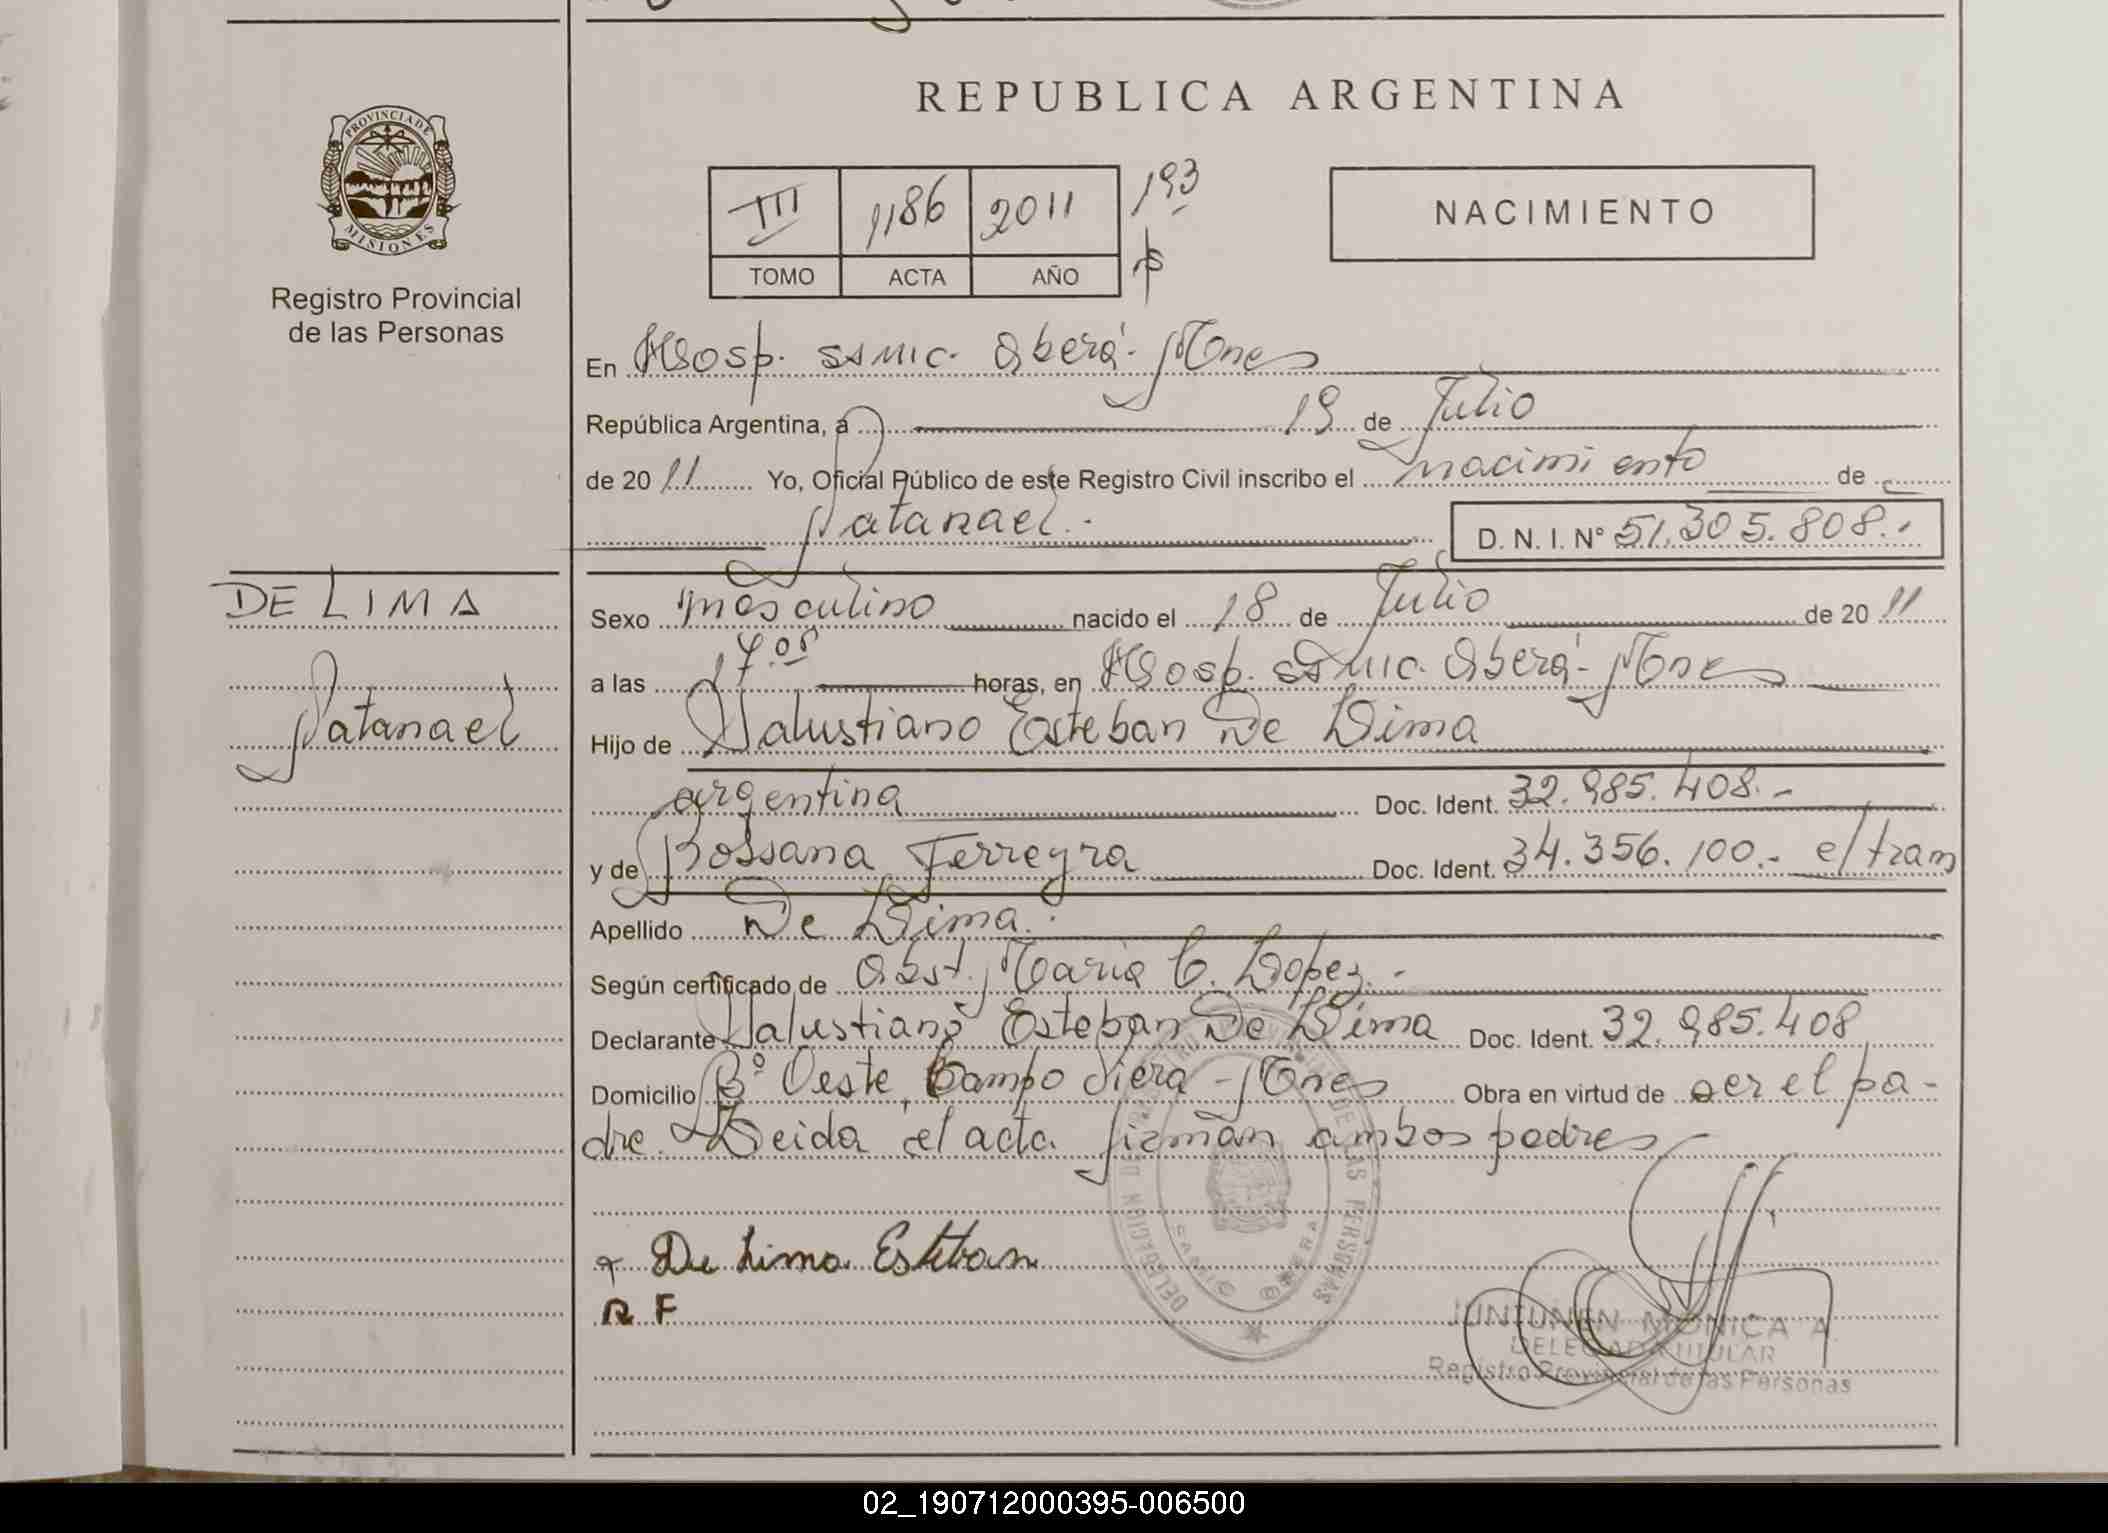 REPUBLICA ARGENTINA
PROVINCIA DE
MISIONES
Registro Provincial
de las Personas
III 1186 2011 193
TOMO ACTA AÑO
NACIMIENTO
En Hosp. SAMIC. Oberá - Mnes
República Argentina, a 19 de Julio
de 20 11 Yo, Oficial Público de este Registro Civil inscribo el nacimiento de
Natanael.-
D. N. I. N° 51.305.808.-
DE LIMA
Natanael
Sexo masculino nacido el 18 de Julio de 20 11
a las 17.05 horas, en Hosp. SAMIC. Oberá - Mnes
Hijo de Salustiano Esteban De Lima
argentina Doc. Ident. 32.985.408.-
y de Rossana Ferreyra Doc. Ident. 34.356.100.- e/tram
Apellido De Lima.
Según certificado de Obst. Maria C. Lopez.-
Declarante Salustiano Esteban De Lima Doc. Ident. 32.985.408
Domicilio B° Oeste, Campo Viera - Mnes Obra en virtud de ser el pa-
dre. Leida el acta firman ambos padres -
De Lima Esteban
R F
DELEGACION REGISTRO PROVINCIAL DE LAS PERSONAS
SAMIC OBERA
JUNTUNEN MONICA A.
DELEGADA TITULAR
Registro Provincial de las Personas
02_190712000395-006500